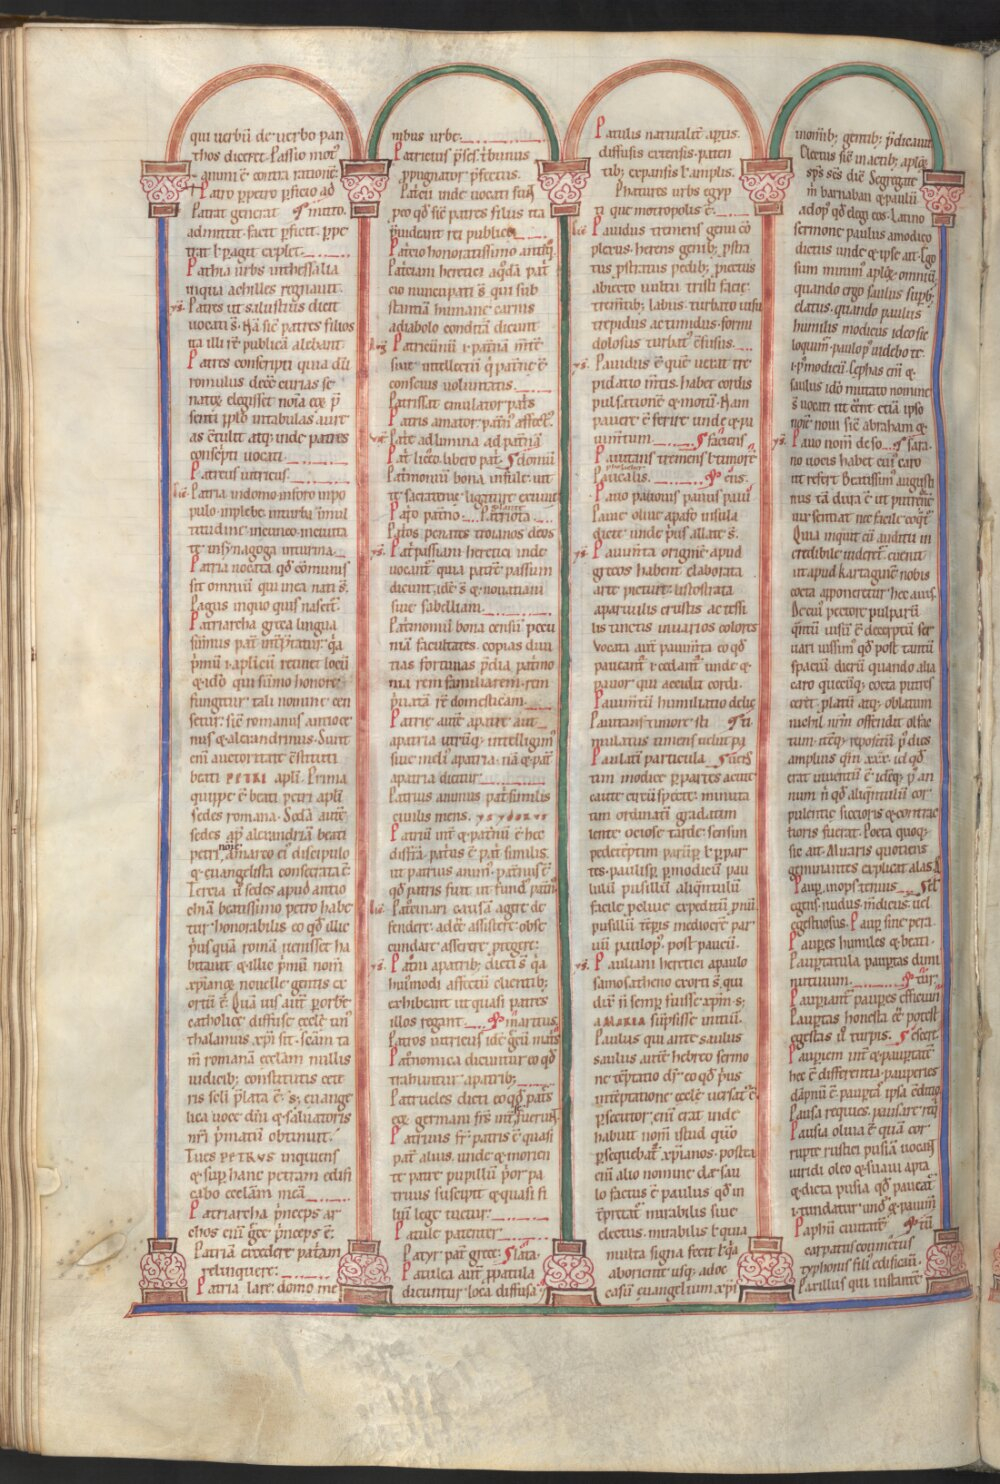 qui uerbū de uerbo pan
thos diceret. Passio mot᷒
animi ē contra rationē.
Patro ꝑpetro ꝑficio ad
Patrat generat
admittit. facit ꝑficit. ꝑpe
trat ꝉ ꝑagit explet.
Pathia urbs inthessalia
inqua achilles regnauit.
Patres ut salustius dicit
uocati s̄. Nā sic̄ patres filios
ita illi rē publicā alebant.
Patres conscripti quia dū
romulus decē curias se
as ētulit atq; inde patres
consc̄pti uocati.
Patreus uitricus.
Patria indomo inforo inpo
pulo. inplebe. inturba inmul
titudine. inuico. inciuita
te insynagoga inturma.
Patria uocata qđ cōmunis
sit omniū qui inea nati s̄.
Pagus inquo quis nascit̄.
Patriarcha greca lingua
summus pat̄ int̄ptatur. q̄a
p̄mū .i. aplīcū retinet locū
& idō qui sūmo honore
fungitur tali nomine cen
setur. sic̄ romanus antioce
nus & alexandrinus. Sunt
eni auctoritate c̄stituti
beati PETRI apli. Prima
quippe ē beati petri apli
sedes romana. Scđa aut̄
sedes ap̄ alexandriā beati
petri noīe amarco ei᷒ discipulo
& euangelista consecrata ē.
Tercia ū sedes apud antio
chiā beatissimo petro habe
tur honorabilis eo qđ illic
p̄usquā romā uenisset ha
bitauit & illic p̄mū nom̄
xp̄ianę nouellę gentis ex
ortū ē. Quā uis aut̄ ꝑorbē
catholicę diffuse eccłę un᷒
thalamus xp̄i sit. sc̄am ta
m̄ romanā eccłam nullis
iudicib; constitutis cęte
ris seli p̄lata ē. s; euange
lica uoce dm̄i & saluatoris
nr̄i p̄matū obtinuit.
Tues PETRVS inquiens
& suꝑ hanc petram edifi
cabo eccłam meā
Patriarcha p̄nceps ar
chos eni grec̄ p̄nceps ē.
Patriā excedere patriam
relinquere:
Patria lare. domo me
nibus urbe.
Patricius p̄ses. t̄bunus
ꝓpugnator p̄fectus.
Patricii inde uocati sun̄
p̄uideant rei publicę
Patricio honoratissimo antiq̄.
Patriciani heretici
cio nuncupati s̄ qui sub
stantiā humanę carnis
adiabolo conditā dicunt
siue intellectū
conscius uoluntatis
Patrissat emulator pat̄s
Patris amator
Pat̄e adlumina ad patriā
Pat̄ liƀo. libero pat̄. domū
Patrimoniū bona
Patriota
Patrios penates troianos deos
Pat̄passiani heretici inde
uocant̄ quia patrē passum
dicunt. idē s̄ & nouatiani
siue sabelliani
Patrimoniū bona censū pecu
niā facultates. copias diui
tias fortunas p̄dia patrimo
nia rem familiarem. rem
p̄uatā rē domesticam.
Patrię aut̄ apatre aut
apatria utrūq; intelligim᷒
siue meli᷒ apatria. nā & pat̄
apatria dicitur
Patrius animus pat̄ similis
ciuilis mens. ysydorus
Patriū int̄ & paternū ē hec
differ̄a. patrius ē pat̄ similis.
ut patrius anim᷒. paternus ē
qđ patris fuit. ut fund᷒ patn̄
Patrocinari causā agere de
fendere. adeē. assistere. obse
cundare. asserere. ꝓtegere:
Patroni apatrib; dicti s̄ q̄a
hui᷒modi affectū clientib;
exhibeant ut quasi patres
illos regant.
Patros nutricius
Patronomica dicuntur eo qđ
trahuntur apatrib;
Patrueles dicti eo qđ pat̄s
eoꝝ germani frs̄ int̄ se fuerun̄
Patruus fr̄ patris ē quasi
pat̄ alius. unde & morien
te patre pupillū p̄or pa
truus suscipit & quasi fi
liū lege tuetur:
Patule patenter
Patyr pat̄ grece:
Patulca aut̄ ꝓpatula
dicuntur loca diffusa
Patulis naturalit̄ aꝑtis.
diffusis extensis. paten
tib; expansis ꝉ amplis.
Phatures urbs egyp
ti que metropolis ē.
Pauidus tremens genu cō
plexus. herens genib; p̄stra
tus p̄stratus pedib; piectus
abiecto uultu tristi facie.
trem̄tib; labiis. turbato uisu
trepidus ac timidus. formi
dolosus turbat᷒ c̄fusus
Pauidus ē & quē uexat tre
pidatio m̄tis. habet cordis
pulsationē & motū. Nam
pauere ē ferire unde & pa
uim̄tum. faciens
Pauitans tremens ꝉ timore
Paucalis.
Pauo pauonis pauus
Paue oliue apafo insula
diete unde p̄us allate s̄.
Pauim̄ta originē apud
grecos habent elaborata
arte picturę. listostrata
aparuulis crustis ac tessi
lis tinctis inuarios colores
uocata aut̄ pauim̄ta eo qđ
paueant̄ .i. cedant̄ unde &
pauor qui accidit cordi.
Pauim̄tū humiliatio
Pauitans timore
mulatus timens uelut
Paulati particula
tim modice ꝑpartes acute
caute circūspecte. minuta
tim ordinati gradatim
lente. ociose. tarde. sensim
pedetēptim
tes. paulisꝑ. ꝑmodicū. pau
lulū pusillū aliq̄ntulū
facile. pelue expeditū
pusillū tēꝑis mediocre par
uū paulop᷒. post paucū.
Pauliani heretici apaulo
samosatheno exorti s̄. qui
dix̄ n̄ semꝑ fuisse xp̄m. s;
a MARIA sūpsisse initiū.
Paulus qui ante saulus
saulus aut̄ hebreo sermo
ne tēptatio dr̄. eo qđ p̄us
intēptatione eccłę uersat᷒ ē
ꝑsecutor eni erat unde
habuit nom̄ istud q̄ndo
ꝑsequebat̄ xp̄ianos. postea
eni alio nomine dæ sau
lo factus ē paulus qđ in
t̄pretat̄ mirabilis siue
electus. mirabilis ꝉ quia
multa signa fecit ꝉ q̄a
aboriente usq; adoc
casū ęuangelium xp̄i
inomīb; gentib; p̄dicauit
Electus sic̄ in actib; aplōꝝ
sp̄s sc̄s dix̄. Segregate
m̄ barnaban & paulū
adop᷒ qđ elegi eos. Latino
sermone paulus amodico
dictus unde & ipse ait. Ego
sum minim᷒ aplōꝝ omniū
quando ergo saulus supb;
elatus. quando paulus
humilis modicus ideo sic
loquim̄. paulop᷒ uidebo te.
.i. p᷒ modicū. Cephas eni &
saulus idō mutato nomine
s̄ uocati ut eēnt etiā ipso
noīe noui sic̄ abraham &
no uocis habet cui᷒ caro
ut refert Beatissim᷒ augusti
nus tā dura ē ut putredinē
uix sentiat nec facile coq̄t̄
Quia inquit cū auditu in
credibile uideret̄. euenit
ut apud kartaginē nobis
cocta apponeretur hec auis.
De cui᷒ pectore pulparū
q̄ntū uisū ē deceptū ser
uari iussim᷒ qđ post tantū
spaciū dierū quando alia
caro quecūq; cocta putres
ceret. platū atq; oblatum
nichil nrm̄ offendit olfac
tum. itēq; repositū p᷒ dies
amplius qm̄ xxx. id qđ
erat inuentū ē. idēq; p᷒ an
num n̄ qđ aliq̄ntulū cor
pulentię siccioris & contrac
tioris fuerat. Poeta quoq;
sic ait. Miraris quotiens
geminantes explicat alas
Pauꝑ. inops. tenuis
egens. nudus. m̄dicus. uel
egestuosus. Pauꝑ siue ꝑera.
Pauꝑes humiles & beati.
Pauꝑtatula pauꝑtas dimi
nutiuum.
Pauꝑiant̄ pauꝑes efficiun̄
Pauꝑtas honesta eē potest
egestas ū turpis.
Pauꝑiem int̄ & pauꝑtatē
hec ē differentia. pauperies
dāpnū ē. pauꝑtas ipsa c̄ditio
Pausa requies. pausare
Pausia oliua ē quā cor
rupte rustici pusiā uocant
uiridi oleo & suaui apta
& dicta pusia qđ paueat̄
.i. tundatur und᷒ & pauim̄
Paphii ciuitatē
typhonis filii edificiū.